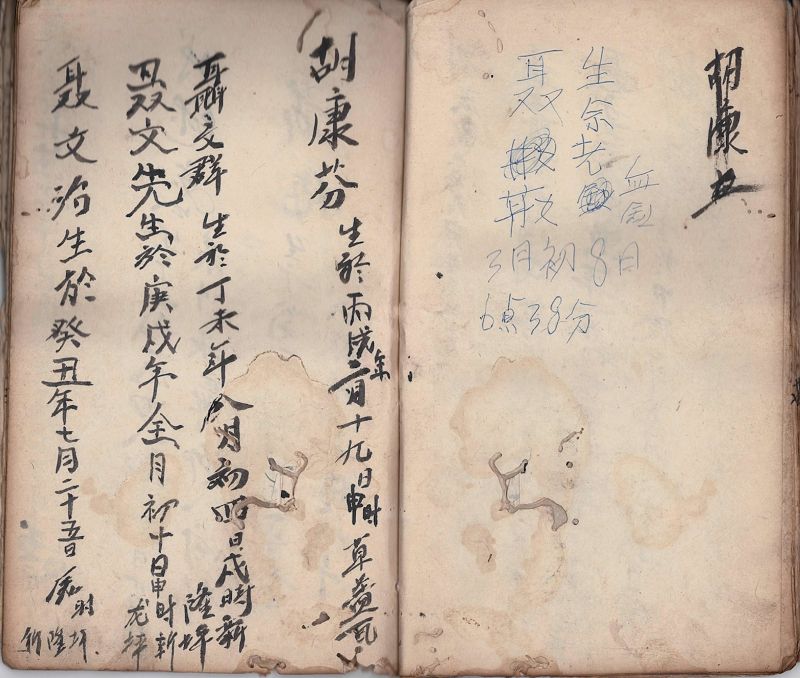 胡康
生余老
血
聂
3月初8日
6点38分
胡康芬 生於丙戌年二月十九日申时 草盖瓦
聶文群 生於丁未年八月初四日戌时新隆坪
聂文先生於庚戌年全月初十日申时新龙坪
聂文 生於癸丑年七月二十五日 时新隆坪